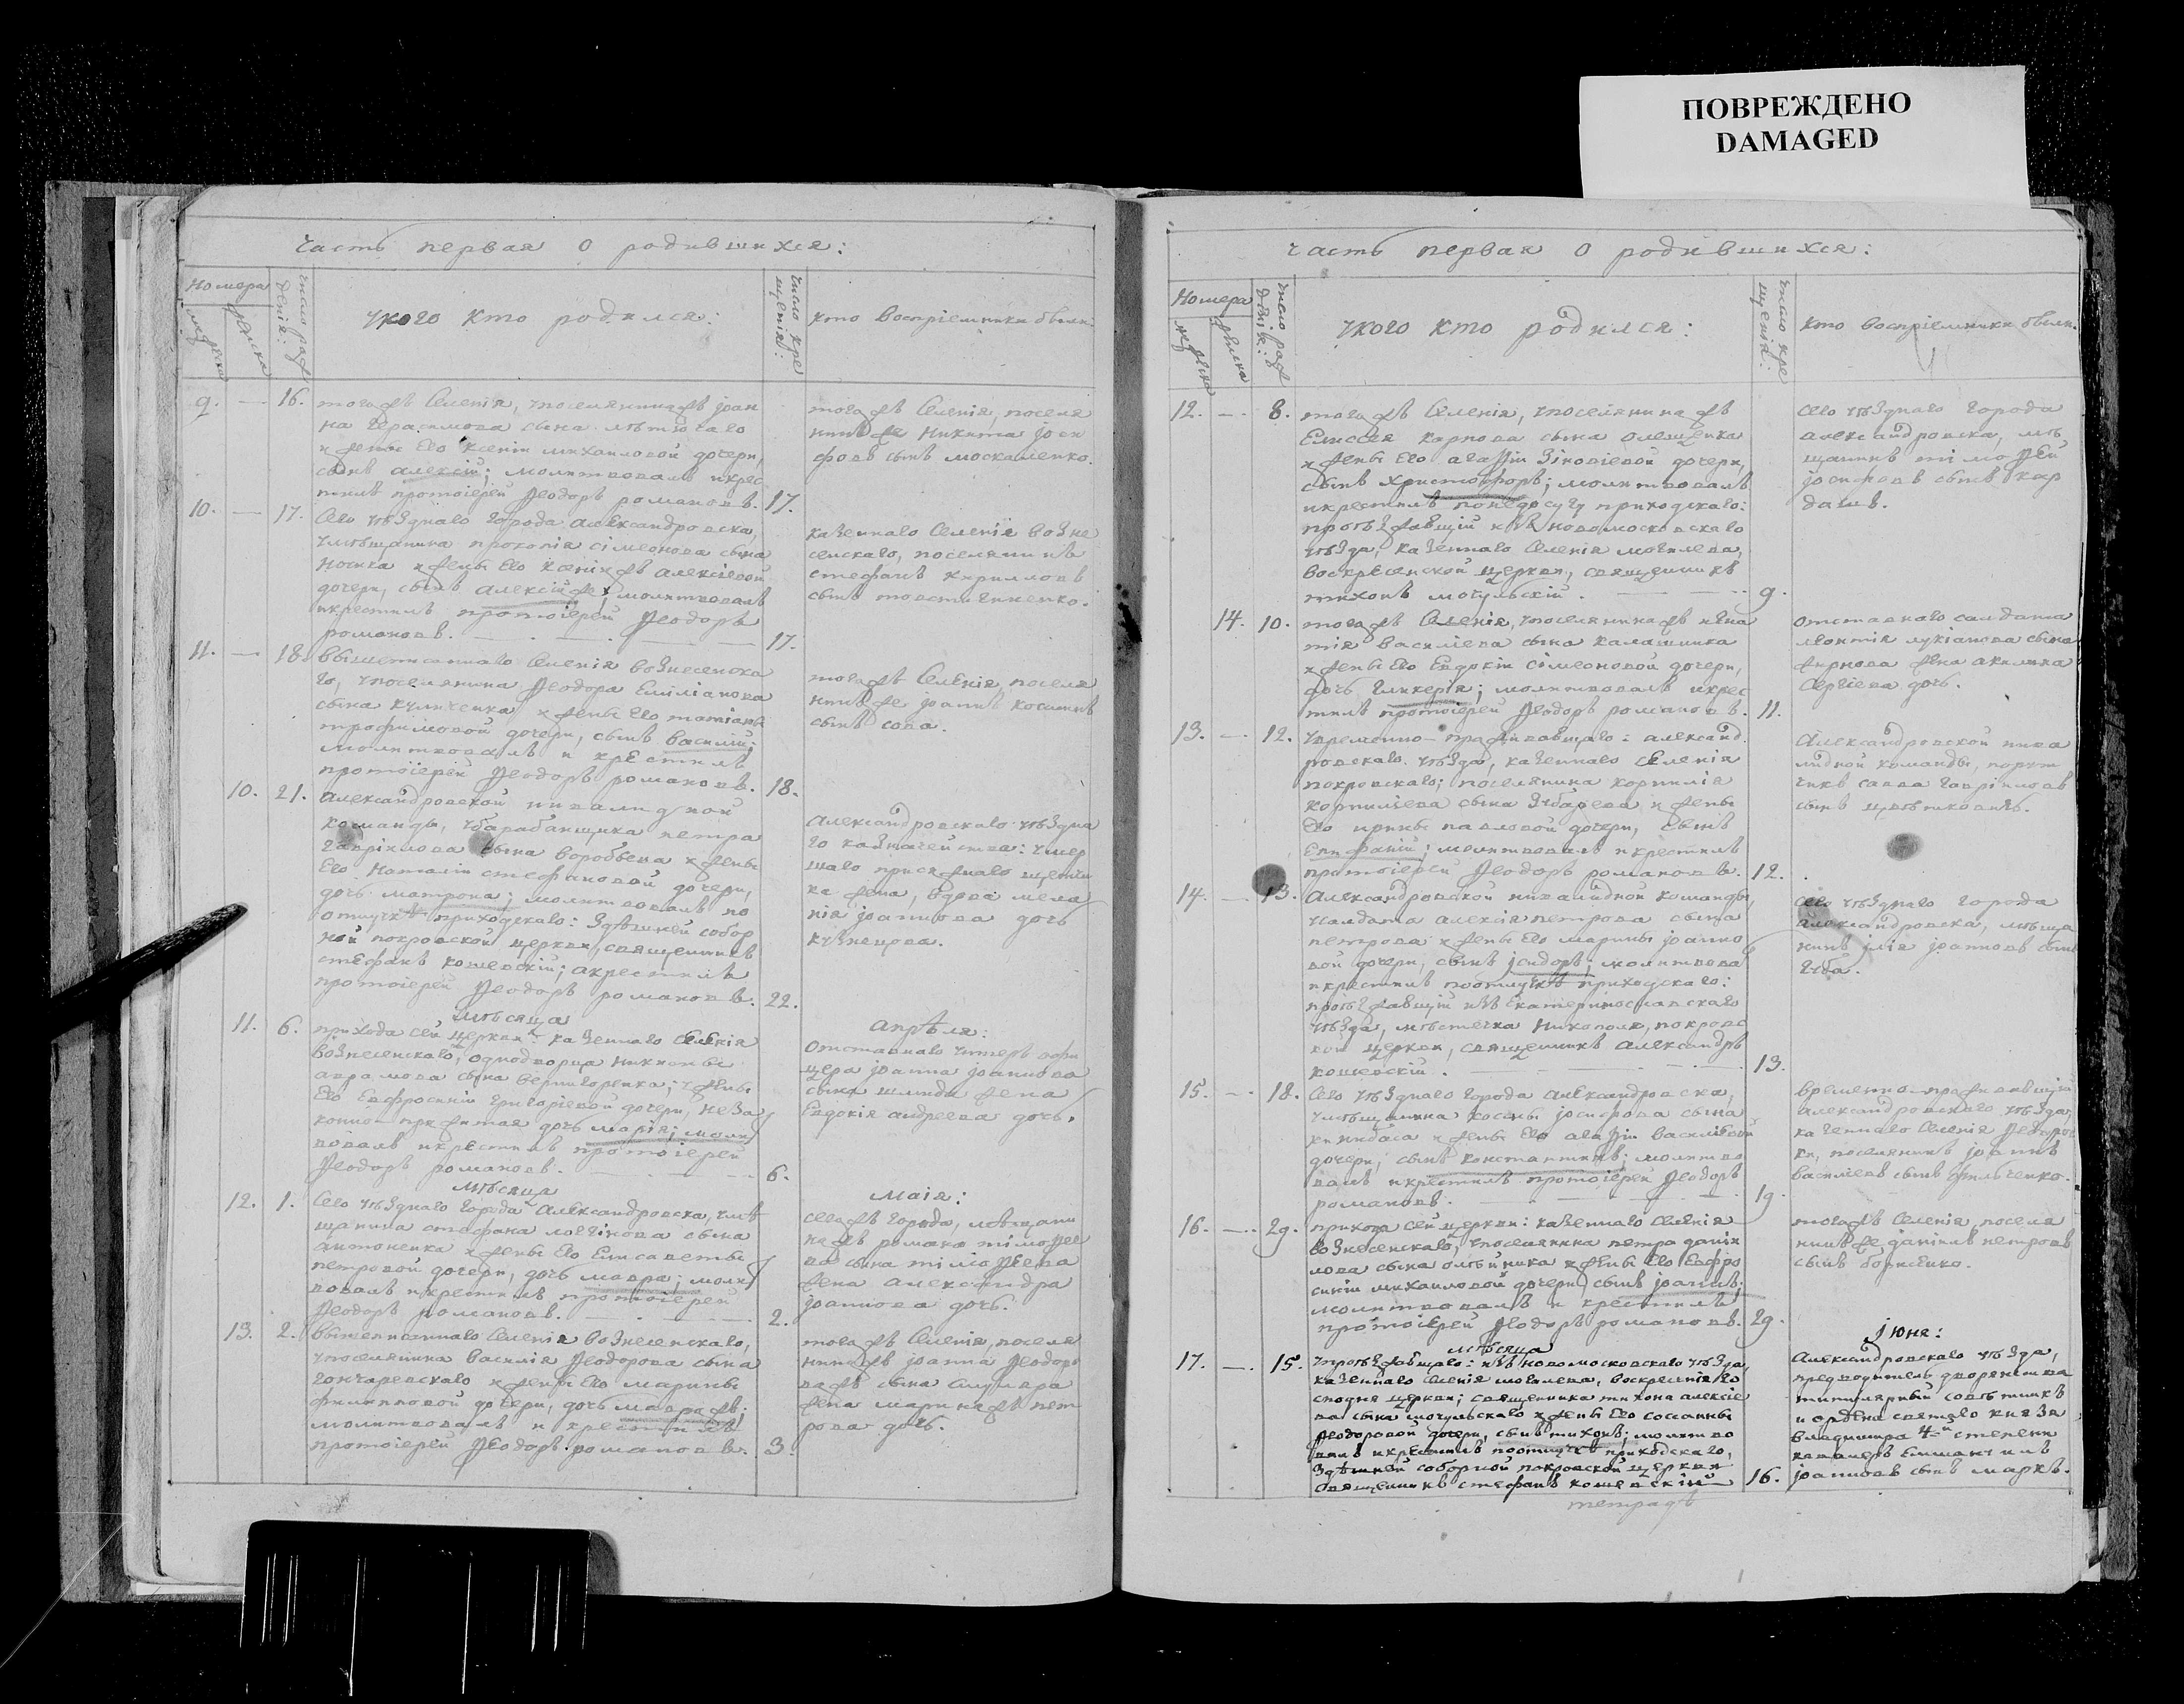 ПОВРЕЖДЕНО
DAMAGED
Часть первая о родившихся:
Номера
мужеска
женска
Число рож
денія:
У кого кто родился:
Число кре
щенія:
Кто воспріемники были:
9. — 16. тогожъ Селенія, у поселянинажъ Іоан
на Герасимова сына
и жены его Ксеніи Михаиловой дочери,
сынъ Алексій; молитвовалъ и крес
тилъ протоіерей Ѳеодоръ Романовъ. 17.
тогожъ Селенія, поселя
нинъ же Никита Іоси
фовъ сынъ Москаленко.
10. — 17. Сего уѣзднаго города Александровска,
у мѣщанина Прокопія Сімеонова сына
Ночика и жены его Ксеніижъ Алексіевой
дочери, сынъ Алексійже; молитвовалъ
и крестилъ протоіерей Ѳеодоръ
Романовъ. 17.
казеннаго Селенія Возне
сенскаго, поселянинъ
Стефанъ Кирилловъ
сынъ Товстиченко.
11. — 18. Вышеписаннаго Селенія Вознесенска
го, у поселянина Ѳеодора Еміліанова
сына Куличенка и жены его Татіаны
Трофимовой дочери, сынъ Василій;
молитвовалъ и крестилъ
протоіерей Ѳеодоръ Романовъ. 18.
тогожъ Селенія, поселя
нинъ же Іоаннъ Косминъ
сынъ Сова.
10. 21. Александровской инвалидной
команды, у барабанщика Петра
Гавріилова сына Воробьева и жены
его Наталіи Стефановой дочери,
дочь Матрона; молитвовалъ по
отлучкѣ приходскаго: здѣшней собор
ной Покровской церкви, священникъ
Стефанъ Кошевскій; а крестилъ
протоіерей Ѳеодоръ Романовъ. 22.
Александровскаго уѣзна
го казначейства: умер
шаго присяжнаго
жена, вдова Мела
нія Іоаннова дочь
Кузнецова.
Мѣсяца Апрѣля:
11. 6. прихода сей церкви: казеннаго Селенія
Вознесенскаго, однодворца Никиты
Аврамова сына Вернигоренка; у жены
его Евфросиніи Григоріевой дочери, неза
конно-прижитая дочь Марія; молит
вовалъ и крестилъ протоіерей
Ѳеодоръ Романовъ. 6.
Отставнаго унтеръ офи
цера Іоанна Іоаннова
сына жена
Евдокія Андреева дочь.
Мѣсяца Маія:
12. 1. Сего уѣзднаго города Александровска, у мѣ
щанина Стефана Логгінова сына
Антоненка и жены его Елисаветы
Петровой дочери, дочь Мавра; молит
вовалъ и крестилъ протоіерей
Ѳеодоръ Романовъ. 2.
Сегожъ города, мѣщани
нажъ Романа Тімоѳее
ва сына Тімоѳеева
жена Александра
Іоаннова дочь.
13. 2. Вышеписаннаго Селенія Вознесенскаго,
у поселянина Василія Ѳеодорова сына
Гончаревскаго и жены его Марины
Филипповой дочери, дочь Мавражъ;
молитвовалъ и крестилъ
протоіерей Ѳеодоръ Романовъ. 3.
тогожъ Селенія, поселя
нинажъ Іоанна Ѳеодоро
важъ сына
жена Маринажъ Пет
рова дочь.
Часть первая о родившихся:
Номера
мужеска
женска
Число рож
денія:
У кого кто родился:
Число кре
щенія:
Кто воспріемники были:
12. — 8. тогожъ Селенія, у поселянинажъ
Елисея Карпова сына Олещенка
и жены его Агаѳіи Зіновіевой дочери,
сынъ Христофоръ; молитвовалъ
и крестилъ по недосугу приходскаго:
проѣзжавшій изъ Новомосковскаго
уѣзда, казеннаго Селенія Могилева,
Воскресенской церкви, священникъ
Тихонъ Мочульскій. 9.
Сего уѣзднаго города
Александровска, мѣ
щанинъ Тімоѳей
Іосифовъ сынъ Кар
дашъ.
14. 10. тогожъ Селенія, у поселянинажъ Игна
тія Василіева сына Калашника
и жены его Евдокіи Сімеоновой дочери,
дочь Гликерія; молитвовалъ и крес
тилъ протоіерей Ѳеодоръ Романовъ. 11.
Отставнаго салдата
Леонтія Лукіанова сына
жена Акилина
Сергіева дочь.
13. — 12. у временно-проживавшаго: Александ
ровскаго уѣзда, казеннаго Селенія
Покровскаго; поселянина Корнилія
Корниліева сына Зубарева и жены
его Ирины Павловой дочери, сынъ
Епифаній; молитвовалъ и крестилъ
протоіерей Ѳеодоръ Романовъ. 12.
Александровской инва
лидной команды, порут
чикъ Савва Гавріиловъ
сынъ Цвѣтковичъ.
14. — 13. Александровской инвалидной команды,
у салдата Алексія Петрова сына
Петрова и жены его Марины Іоанно
вой дочери, сынъ Ісидоръ; молитвова
и крестилъ по отлучкѣ приходскаго:
проѣзжавшій изъ Екатеринославскаго
уѣзда, мѣстечка Никополя, Покровс
кой церкви, священникъ Александръ
Кошевскій. 13.
Сего уѣзднаго города
Александровска, мѣща
нинъ Ілія Іоанновъ сынъ
Губа.
15. — 18. Сего уѣзднаго города Александровска,
у мѣщанина Космы Іосифова сына
и жены его Агаѳіи Василіевой
дочери, сынъ Константинъ; молитво
валъ и крестилъ протоіерей Ѳеодоръ
Романовъ. 19.
Временно-проживающій
Александровскаго уѣзда,
казеннаго Селенія Ѳедоров
ки, поселянинъ Іоаннъ
Василіевъ сынъ Фильченко.
16. — 29. прихода сей церкви: казеннаго Селенія
Вознесенскаго, у поселянина Петра Даніи
лова сына Олѣйника и жены его Евфро
синіи Михаиловой дочери, сынъ Іоаннъ;
молитвовалъ и крестилъ
протоіерей Ѳеодоръ Романовъ. 29.
тогожъ Селенія, поселя
нинъ же Даніилъ Петровъ
сынъ Борисенко.
Мѣсяца Іюня:
17. — 15. у проѣзжавшаго: изъ Новомосковскаго уѣзда,
казеннаго Селенія Могилева, Воскресенія Го
сподня церкви; священника Тихона Алексіе
ва сына Мочульскаго и жены его Сосанны
Ѳеодоровой дочери, сынъ Тихонъ; молитво
валъ и крестилъ по отлучкѣ приходскаго,
здѣшней соборной Покровской церкви
священникъ Стефанъ Кошевскій 16.
Александровскаго уѣзда,
предводитель дворянства
титулярный совѣтникъ
и ордена святаго князя
Владимира 4й степени
кавалеръ Емануилъ
Іоанновъ сынъ Маркъ.
тетрадь